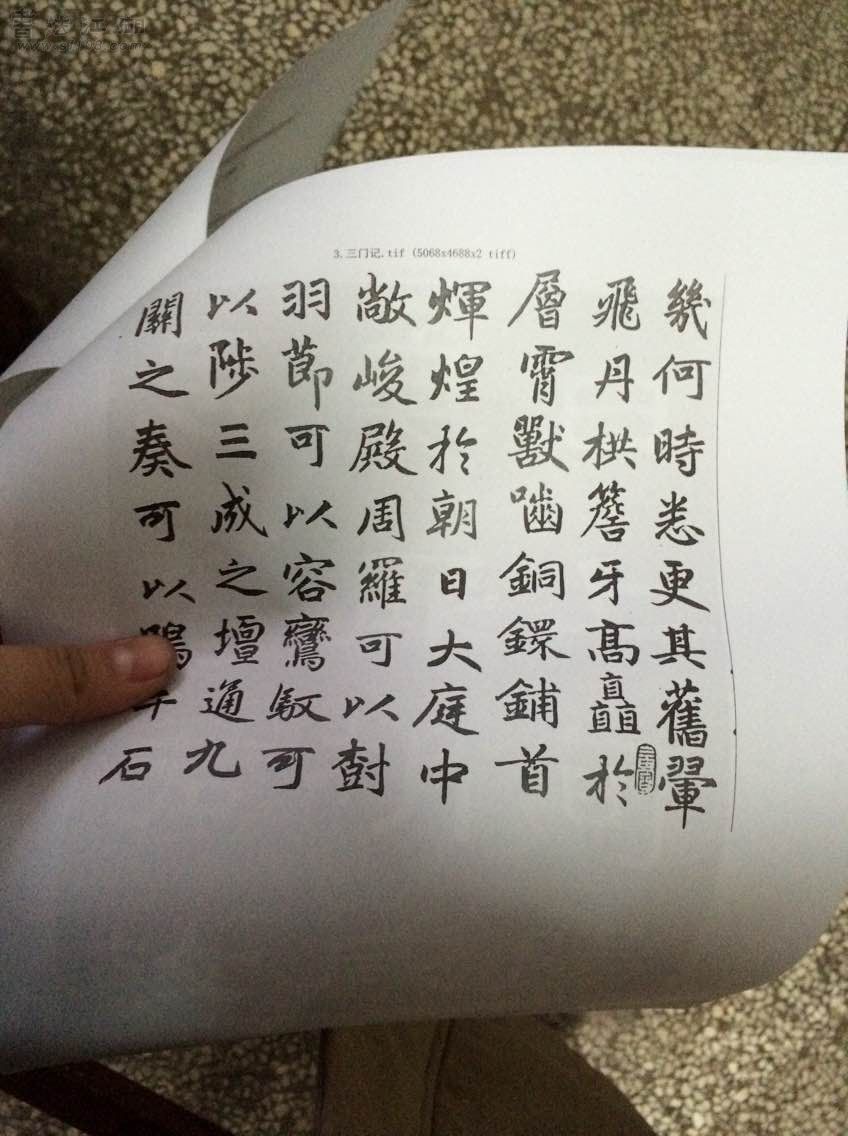 3.三门记.tif (5068x4688x2 tiff)
幾何時悉更其舊翬
飛丹栱簷牙高矗於
層霄獸嚙銅鐶鋪首
輝煌於朝日大庭中
敞峻殿周羅可以對
羽節可以容鸞馭可
以陟三成之壇通九
關之奏可以鳴石